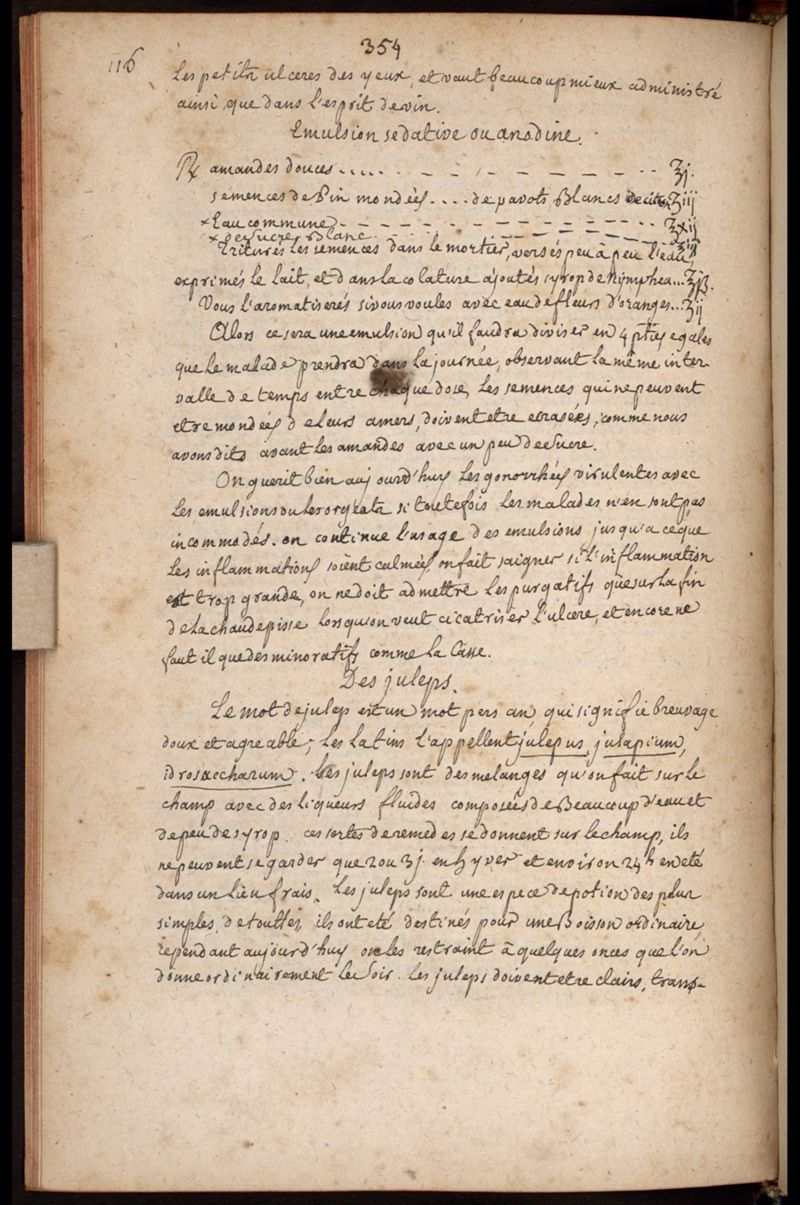 354
116
les petits ulceres des yeux, et vaut beaucoup mieux administré
ainsi que dans l'esprit de vin.
Emulsion sedative ou anodine.
℞ amandes douces..... ℥j.
semences de Pin mondées.... de pavots Blancs ʒiij
× Eau commune ℥xij
× de sucre Blanc ʒiij
Triturés les semences dans le mortier, versés peu à peu l'eau,
exprimés le lait, et dans la colature ajoutés syrop de nymphea...℥jß.
Vous l'aromatiserés si vous voules avec eau de fleurs d'oranges...ʒij
Alors ce sera une emulsion qu'il faudra diviser en 4 pties egales
que le malade prendra dans la journée, observant la même inter-
valle de temps entre chaque dose, les semences qui ne peuvent
etre mondées de leurs amers, doivent etre ecrasées, comme nous
avons dits avant les amandes avec un peu de sucre.
On guerit bien aujourd'huy les gonorrhées virulentes avec
les emulsions ou les orgeats si toutefois les malades n'en sont pas
incommodés. on continue l'usage des emulsions jusqu'a ce que
les inflammations soient calmées on fait saigner si l'inflammation
est trop grande, on ne doit admettre les purgatifs que sur la fin
de la chaudepisse lorsqu'on veut cicatriser l'ulcere, et encore ne
faut il que des minoratifs comme la Casse.
Des juleps.
Le mot de julep est un mot persan, qui signifie breuvage
doux et agreable; les Latins l'appellent julepus, julapium,
idrosaccharum. les juleps sont des melanges qu'on fait sur le
champ avec des liqueurs fluides composées de Beaucoup d'eau et
de peu de syrop. ces sortes de remedes se donnent sur le champ, ils
ne peuvent se garder que 2 ou 3 j. en hyver et environ 24 h en eté
dans un lieu frais. Les juleps sont une espece de potion des plus
simples de touttes, ils ont eté destinés pour une Boisson ordinaire,
cependant aujourd'huy on les restraint à quelques onces que l'on
donne ordinairement le soir. les juleps doivent etre clairs, trans-